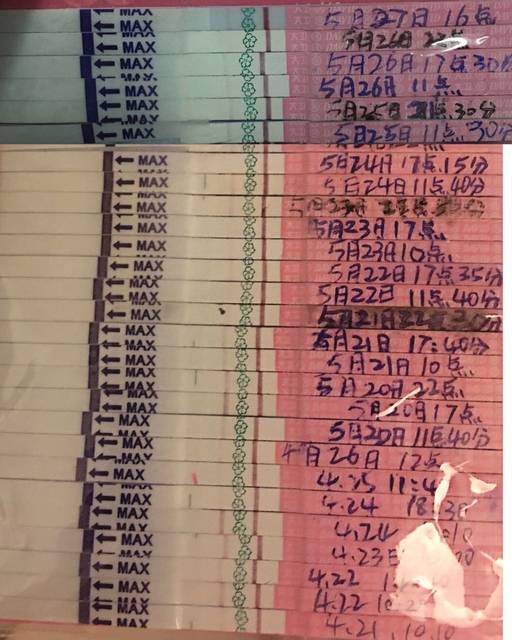 MAX 5月27日 16点
MAX 5月26日 22点
MAX 5月26日 17点30分
MAX 5月26日 11点
MAX 5月25日 30分
MAX 5月25日 11点30分
MAX 5月24日 17点15分
MAX 5月24日 11点40分
MAX 5月23日
MAX 5月23日 17点
MAX 5月23日 10点
MAX 5月22日 17点35分
MAX 5月22日 11点40分
MAX 5月21日 22点30分
MAX 5月21日 17:40分
MAX 5月21日 10点
MAX 5月20日 22点
MAX 5月20日 17点
MAX 5月20日 11点40分
MAX 4月26日 12点
MAX 4.25 11:4
MAX 4.24 18:30
MAX 4.24
MAX 4.23日
MAX 4.22
MAX 4.22
MAX 4.21 10